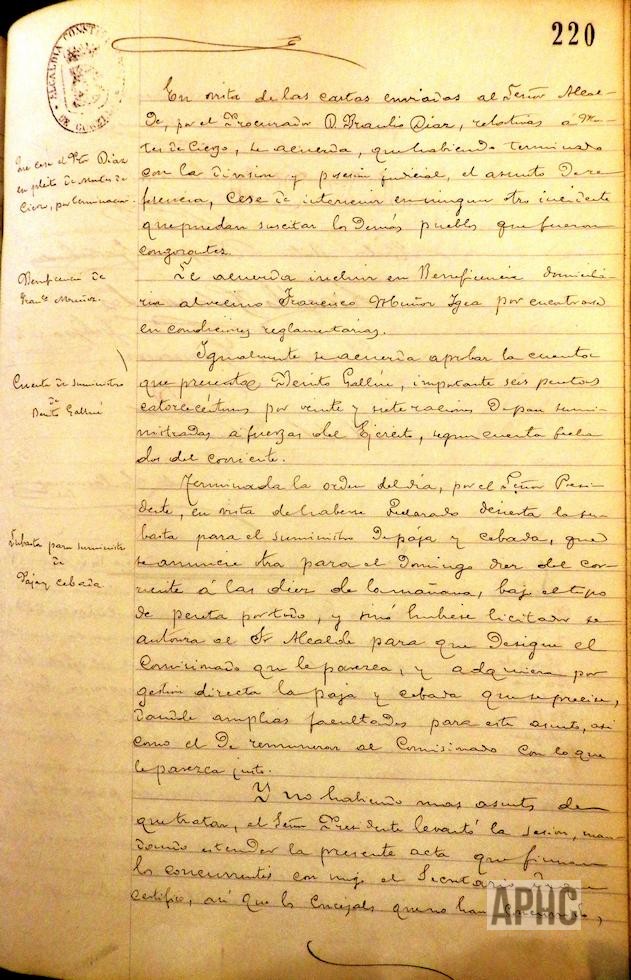 220
ALCALDIA CONSTI
DE
En vista de las cartas enviadas al Señor Alcal-
de, por el Procurador D. Braulio Diaz, relativas á Mon-
tes de Cierzo, se acuerda, que habiendo terminado
con la division y posesion judicial, el asunto de re-
ferencia, cese de intervenir en ningun otro incidente
que puedan suscitar los demás pueblos que fueron
congozantes.
Que cese el Pr. Diaz
en pleito de Montes de
Cierzo, por terminacion.
Se acuerda incluir en Beneficencia domicilia-
ria al vecino Francisco Muñoz Igea por encontrarse
en condiciones reglamentarias.
Beneficencia de
Franco Muñoz.
Igualmente se acuerda aprobar la cuenta
que presenta Benito Gallué, importante seis pesetas
catorce céntimos por veinte y siete raciones de pan sumi-
nistradas a fuerzas del Ejército, segun cuenta fecha
dos del corriente.
Cuenta de suministro
de
Benito Gallué
Terminada la orden del dia, por el Señor Presi-
dente, en vista de haberse declarado desierta la su-
basta para el suministro de paja y cebada, que
se anuncie otra para el Domingo diez del cor-
riente á las diez de la mañana, bajo el tipo
de peseta por todo, y sinó hubiese licitador se
autoriza al Sr Alcalde para que designe el
Comisionado que le parezca, y adquiera por
gestion directa la paja y cebada que se precise,
dandole amplias facultades para este asunto, asi
como el de remunerar al Comisionado con lo que
le parezca justo.
Subasta para suministro
de
Paja y cebada
Y no habiendo mas asuntos de
que tratar, el Señor Presidente levantó la sesion, man-
dando estender la presente acta que firman
los concurrentes con migo el Secretario de que
certifico, asi que los Concejales que no han concurrido,
APHC